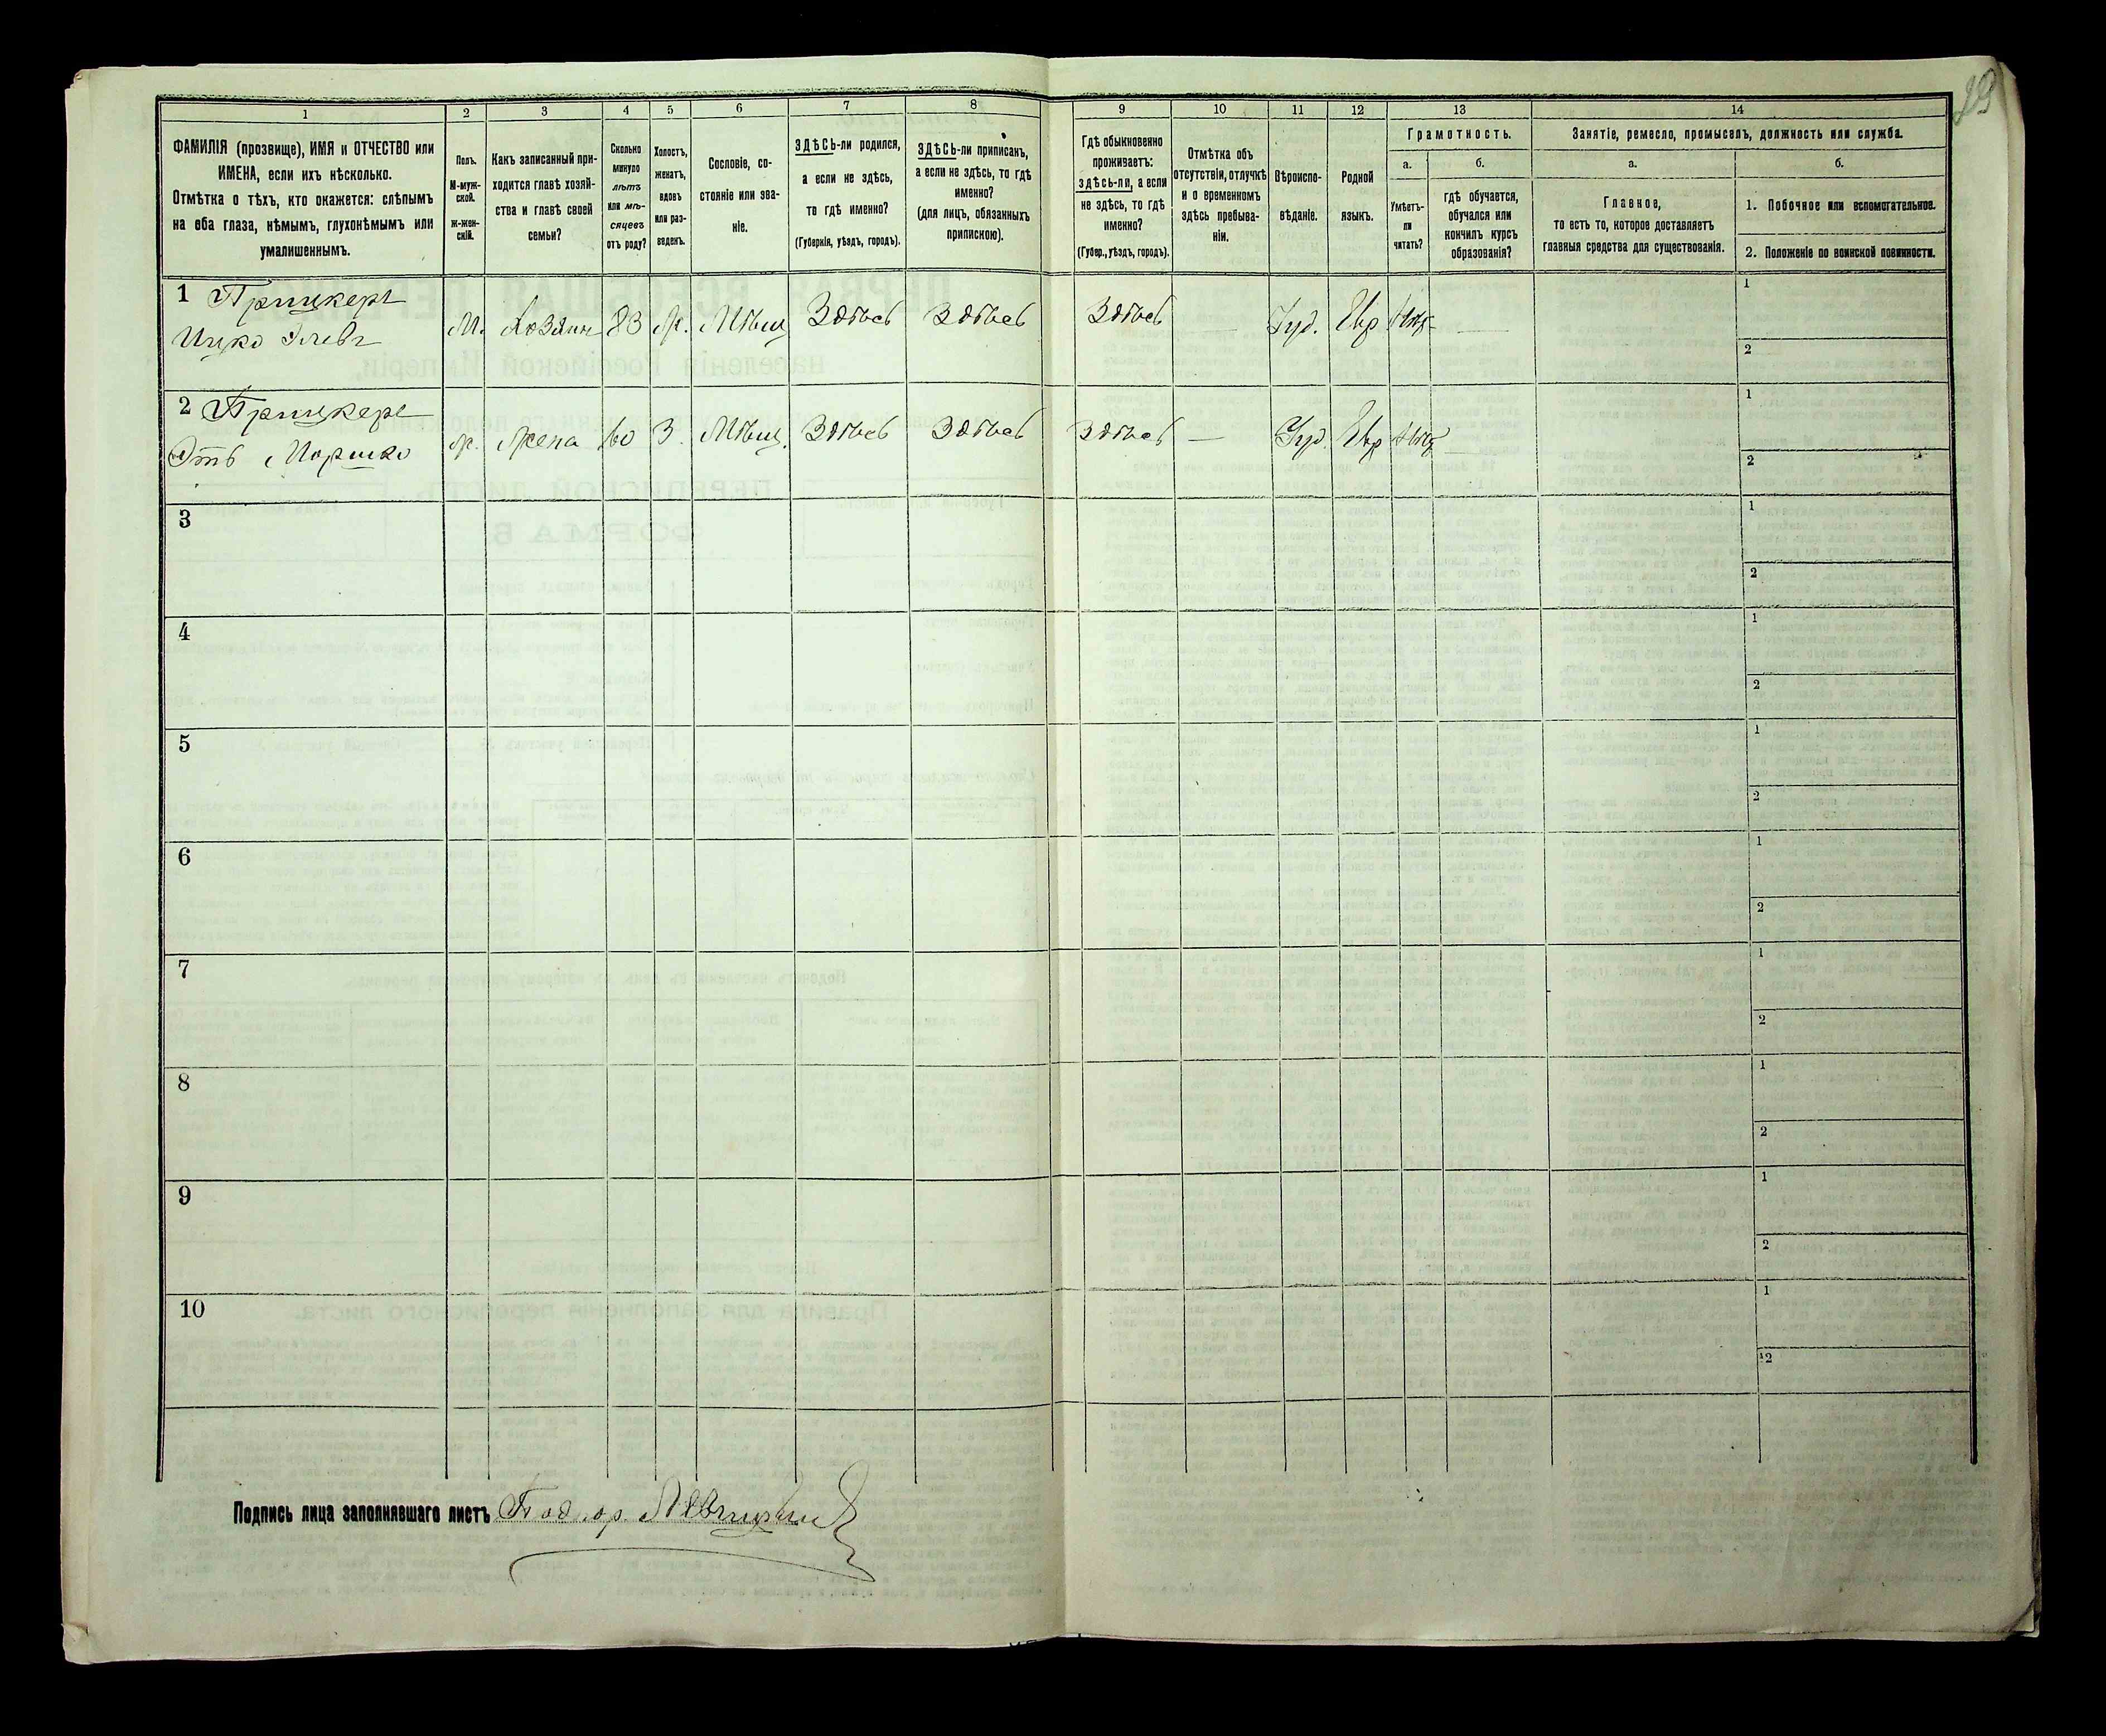 29
1
2
3
4
5
6
7
8
9
10
11
12
13
14
ФАМИЛІЯ (прозвище), ИМЯ и ОТЧЕСТВО или
ИМЕНА, если ихъ нѣсколько.
Отмѣтка о тѣхъ, кто окажется: слѣпымъ
на оба глаза, нѣмымъ, глухонѣмымъ или
умалишеннымъ.
Полъ.
М-муж-
ской.
Ж-жен-
скій.
Какъ записанный при-
ходится главѣ хозяй-
ства и главѣ своей
семьи?
Сколько
минуло
лѣтъ
или мѣ-
сяцевъ
отъ роду?
Холостъ,
женатъ,
вдовъ
или раз-
веденъ.
Сословіе, со-
стояніе или зва-
ніе.
ЗДѢСЬ-ли родился,
а если не здѣсь,
то гдѣ именно?
(Губернія, уѣздъ, городъ).
ЗДѢСЬ-ли приписанъ,
а если не здѣсь, то гдѣ
именно?
(для лицъ, обязанныхъ
припискою).
Гдѣ обыкновенно
проживаетъ:
здѣсь-ли, а если
не здѣсь, то гдѣ
именно?
(Губер., уѣздъ, городъ).
Отмѣтка объ
отсутствіи, отлучкѣ
и о временномъ
здѣсь пребыва-
ніи.
Вѣроиспо-
вѣданіе.
Родной
языкъ.
Грамотность.
а.
б.
Умѣетъ-
ли
читать?
гдѣ обучается,
обучался или
кончилъ курсъ
образованія?
Занятіе, ремесло, промыселъ, должность или служба.
а.
б.
Главное,
то есть то, которое доставляетъ
главныя средства для существованія.
1. Побочное или вспомогательное.
2. Положеніе по воинской повинности.
1 Прицкеръ
Ицко
М. Хозяинъ 83 Ж. Мѣщ Здѣсь Здѣсь Здѣсь — Іуд. Евр Нѣт —
1
2
2 Прицкеръ
Ж. Жена 60 З. Мѣщ. Здѣсь Здѣсь Здѣсь — Іуд. Евр Нѣт —
1
2
3
1
2
4
1
2
5
1
2
6
1
2
7
1
2
8
1
2
9
1
2
10
1
2
Подпись лица заполнявшаго листъ